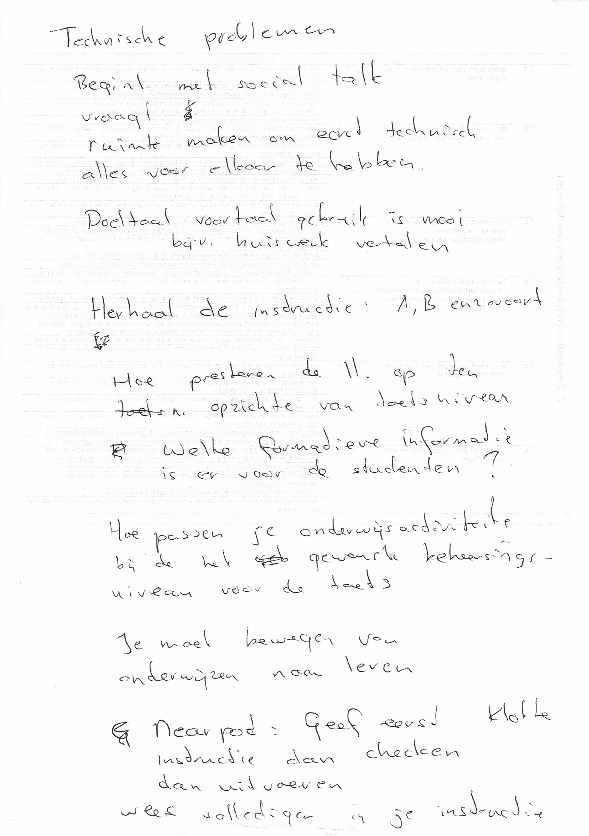 Technische problemen
Begint met social talk
vraagt
ruimte maken om eerst technisch
alles voor elkaar te hebben.
Doeltaal voertaal gebruik is mooi
bijv. huiswerk vertalen
Herhaal de instructie: A, B enzovoort
Hoe presteren de ll. op ten
toets n. opzichte van toetsniveau
Welke formatieve informatie
is er voor de studenten?
Hoe passen je onderwijsactiviteite
bij de het gewenste beheersings-
niveau voor de toets
Je moet bewegen van
onderwijzen naar leven
Nearpod: Geef eerst
instructie dan checken
dan uitvoeren
wees vollediger in je instructie